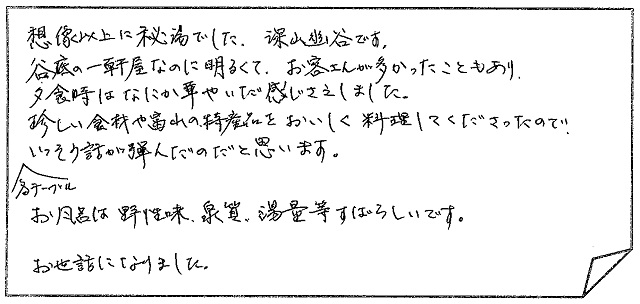 想像以上に秘湯でした。深山幽谷です。
谷底の一軒屋なのに明るくて、お客さんが多かったこともあり、
夕食時はなにか華やいだ感じさえしました。
珍しい食材や富山の特産品をおいしく料理してくださったので、
いっそう話が弾んだのだと思います。
各テーブル
お風呂は野性味、泉質、湯量等すばらしいです。
お世話になりました。